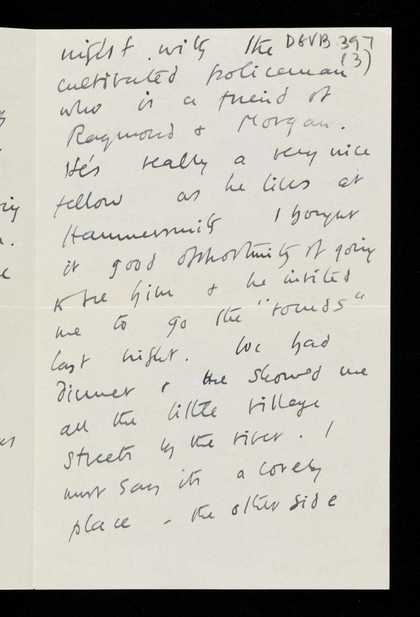 night with the DGVB 397
cultivated policeman (3)
who is a friend of
Raymond & Morgan.
He's really a very nice
fellow as he lives at
Hammersmith I thought
it good opportunity of going
to see him & he invited
me to go the "rounds"
last night. We had
dinner & he showed me
all the little village
streets by the river. I
must say its a lovely
place - the other side